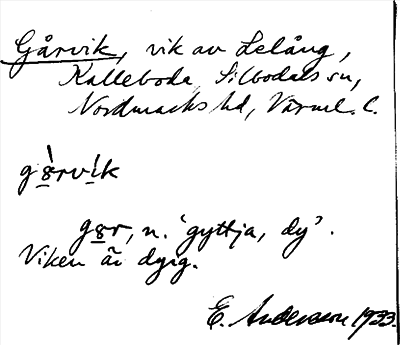 Gårvik, vik av Lelång,
Kalleboda, Silbodals sn,
Nordmarks hd, Värml. l.
g8̲rvi̲k
g8̲r, n. 'gyttja, dy'.
Viken är dyig.
E. Andersson 1933.